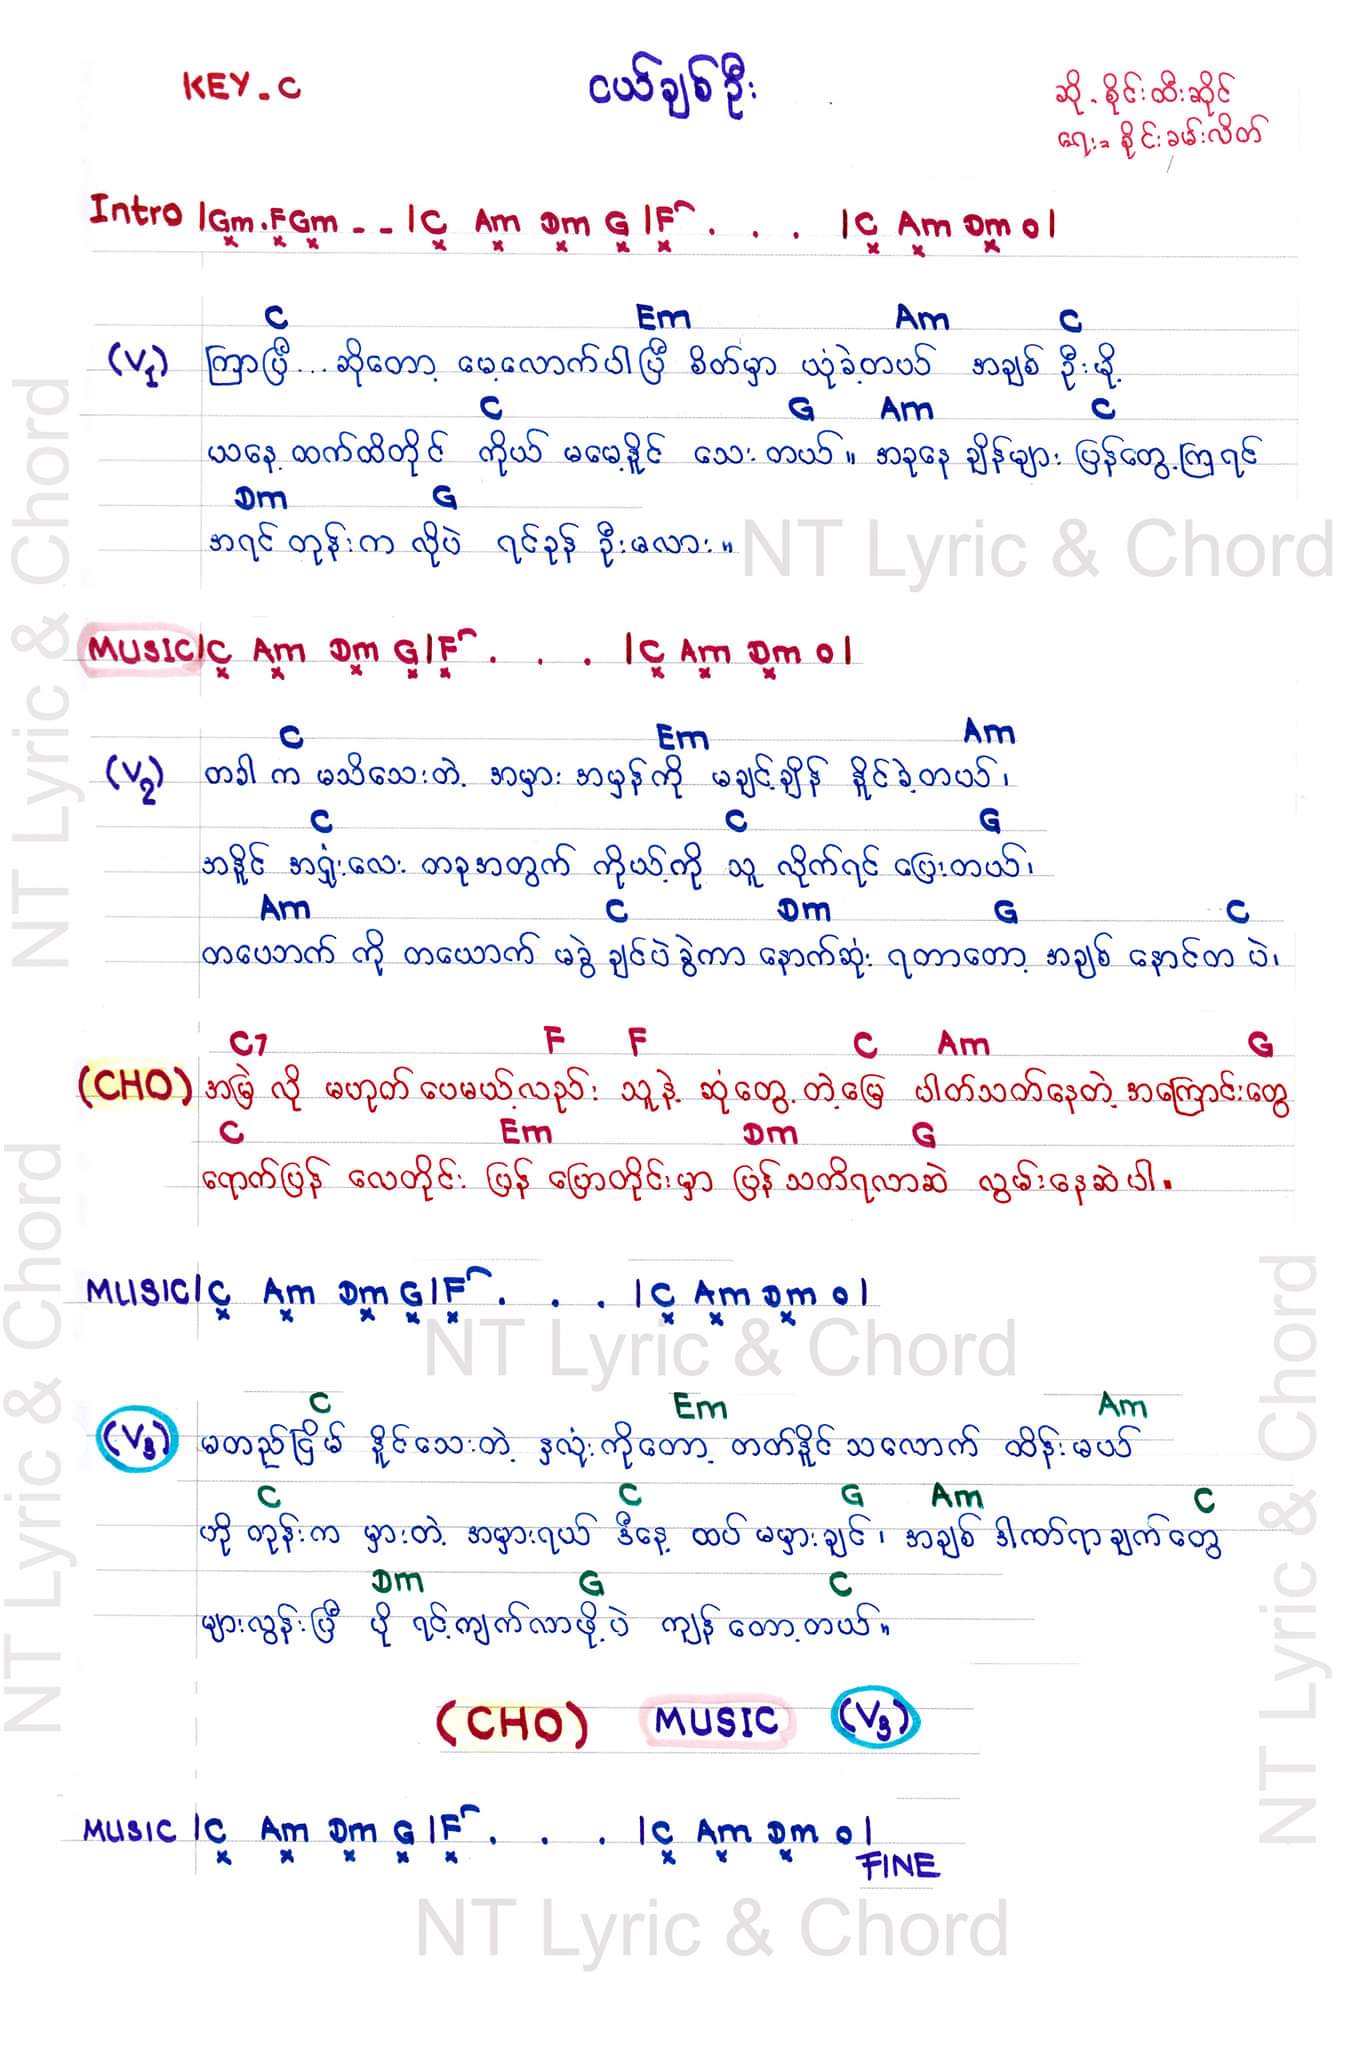 KEY - C
ငယ်ချစ်ဦး
ဆို - စိုင်းထီးဆိုင်
ရေး = စိုင်းခမ်းလိတ်
Intro |Gm . F Gm - - | C Am Dm G | F . . . | C Am Dm o |
C Em Am C
(V1) ကြာပြီ... ဆိုတော့ မေ့လောက်ပါပြီ စိတ်မှာ ယုံခဲ့တယ် အချစ် ဦးမို့
C G Am C
ယနေ့ ထက်ထိတိုင် ကိုယ် မမေ့နိုင် သေးတယ်။ အခုနေ ချိန်များ ပြန်တွေ့ကြရင်
Dm G
အရင် တုန်းက လိုပဲ ရင်ခုန် ဦးမလား။
NT Lyric & Chord
MUSIC | C Am Dm G | F . . . | C Am Dm o |
C Em Am
(V2) တခါ က မသိသေးတဲ့ အမှား အမှန်ကို မချင့်ချိန် နိုင်ခဲ့တယ်၊
C C G
အနိုင် အရှုံးလေး တခုအတွက် ကိုယ့်ကို သူ လိုက်ရင် ပြေးတယ်၊
Am C Dm G C
တပေဘက် ကို တယောက် မခွဲ ချင်ပဲခွဲကာ နောက်ဆုံး ရတာတော့ အချစ် နောင်တ ပဲ၊
C7 F F C Am G
(CHO) အမြဲ လို မဟုတ် ပေမယ့်လည်း သူနဲ့ ဆုံတွေ့ တဲ့မြေ ပါတ်သက်နေတဲ့ အကြောင်းတွေ
C Em Dm G
ရောက်ပြန် လေတိုင်း ပြန် ပြောတိုင်းမှာ ပြန်သတိရလာဆဲ လွမ်းနေဆဲပါ။
MUSIC | C Am Dm G | F . . . | C Am Dm o |
NT Lyric & Chord
C Em Am
(V3) မတည်ငြိမ် နိုင်သေးတဲ့ နှလုံးကိုတော့ တတ်နိုင်သလောက် ထိန်းမယ်
C C G Am C
ဟို တုန်းက မှားတဲ့ အမှားရယ် ဒီနေ့ ထပ် မမှားချင်၊ အချစ် ဒါဏ်ရာချက်တွေ
Dm G C
များလွန်းပြီ ပို ရင့်ကျက်လာဖို့ပဲ ကျန်တော့တယ်။
(CHO) MUSIC (V3)
MUSIC | C Am Dm G | F . . . | C Am Dm o |
FINE
NT Lyric & Chord
NT Lyric & Chord
NT Lyric & Chord
NT Lyric & Chord